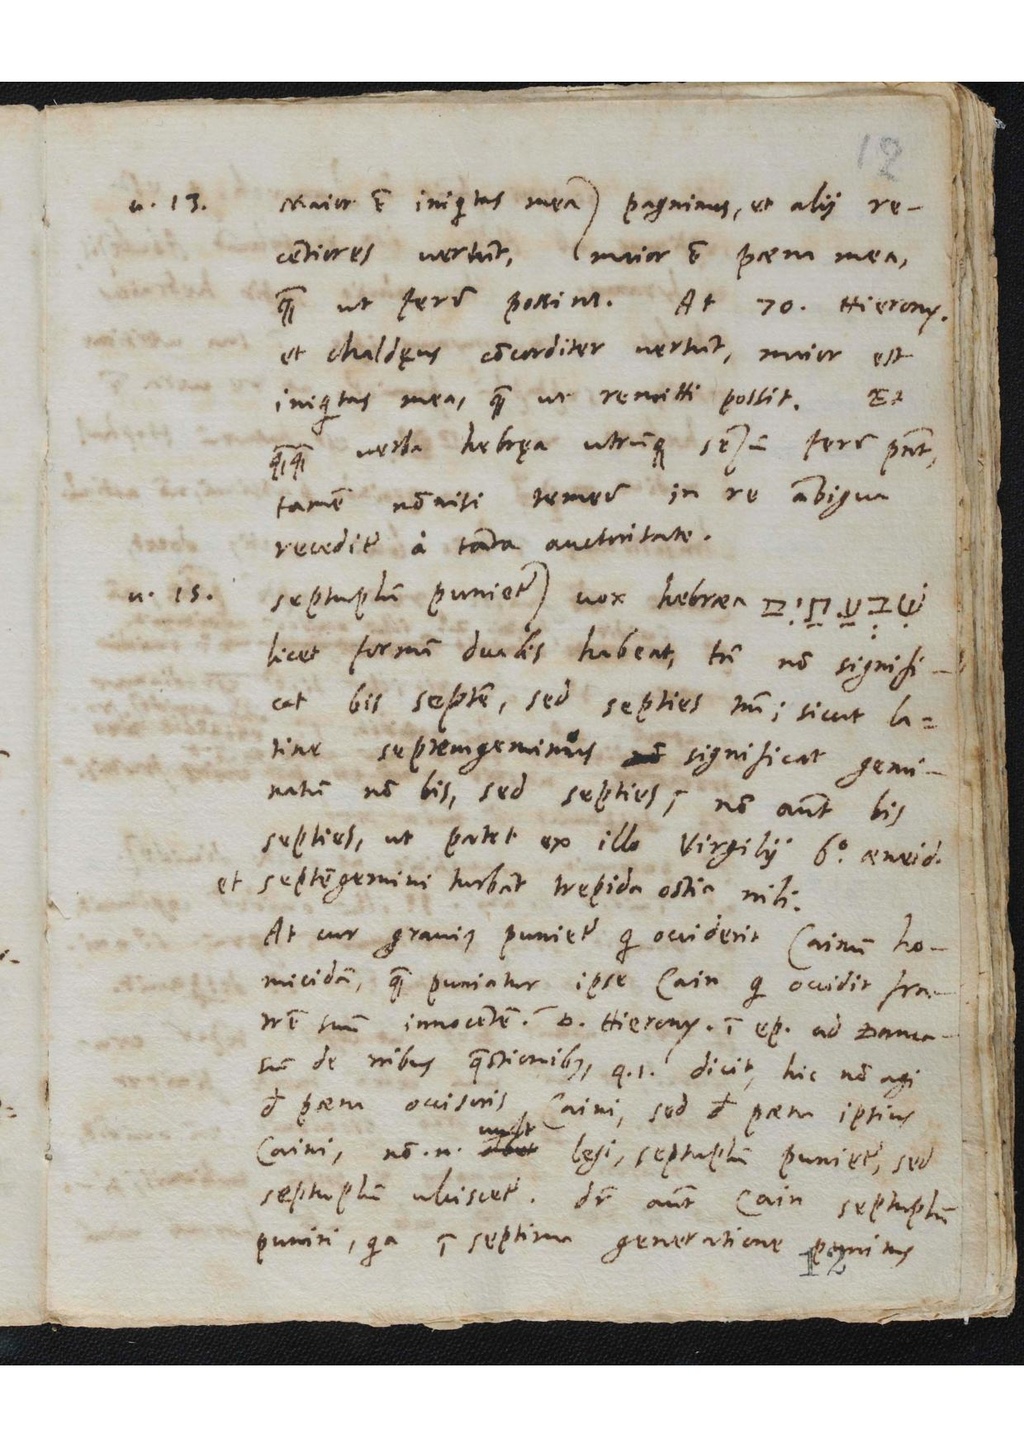 12
v. 13. Maior ē iniq̄tas mea) pagninus, et alij re-
cētiores vertūt, (maior ē pœna mea,
quā ut ferrē possim. At 70. Hierony.
et chaldęus cōcorditer vertūt, maior est
iniq̄tas mea, quā ut remitti possit. Et
quāquā verba hebręa utrūq sēsū ferrē pn̄t,
tamē nō nisi temerē in re ābigua
receditr̄ à tāta auctoritate.
v. 15. septuplū punietr̄) vox hebræa שִׁבְעָתַיִם
licet formā dualis habeat, tn̄ nō signifi-
cat bis septē, sed septies tm̄; sicut la=
tine septemgeminus significat gemi-
natū nō bis, sed septies, nō aūt bis
septies, ut patet ex illo Virgilij 6.º æneid.
et septēgemini turbāt trepida ostia nili.
At cur grauius punietr̄ q̄ occiderit Cainū ho-
micidā, quā puniatur ipse Cain q̄ occidit fra-
trē suū innocētē. D. Hierony. ī ep. ad Dama-
sū de tribus quęstionibus, q. 1. dicit, hic nō agi
d̄ pœna occisoris Caini, sed d̄ pœna ipsius
Caini, nō .n. legi, septuplū punietr̄, sed
septuplū ulciscetr̄. dr̄ aūt Cain septuplū
puniri, q̄a ī septima generatione penitus
12